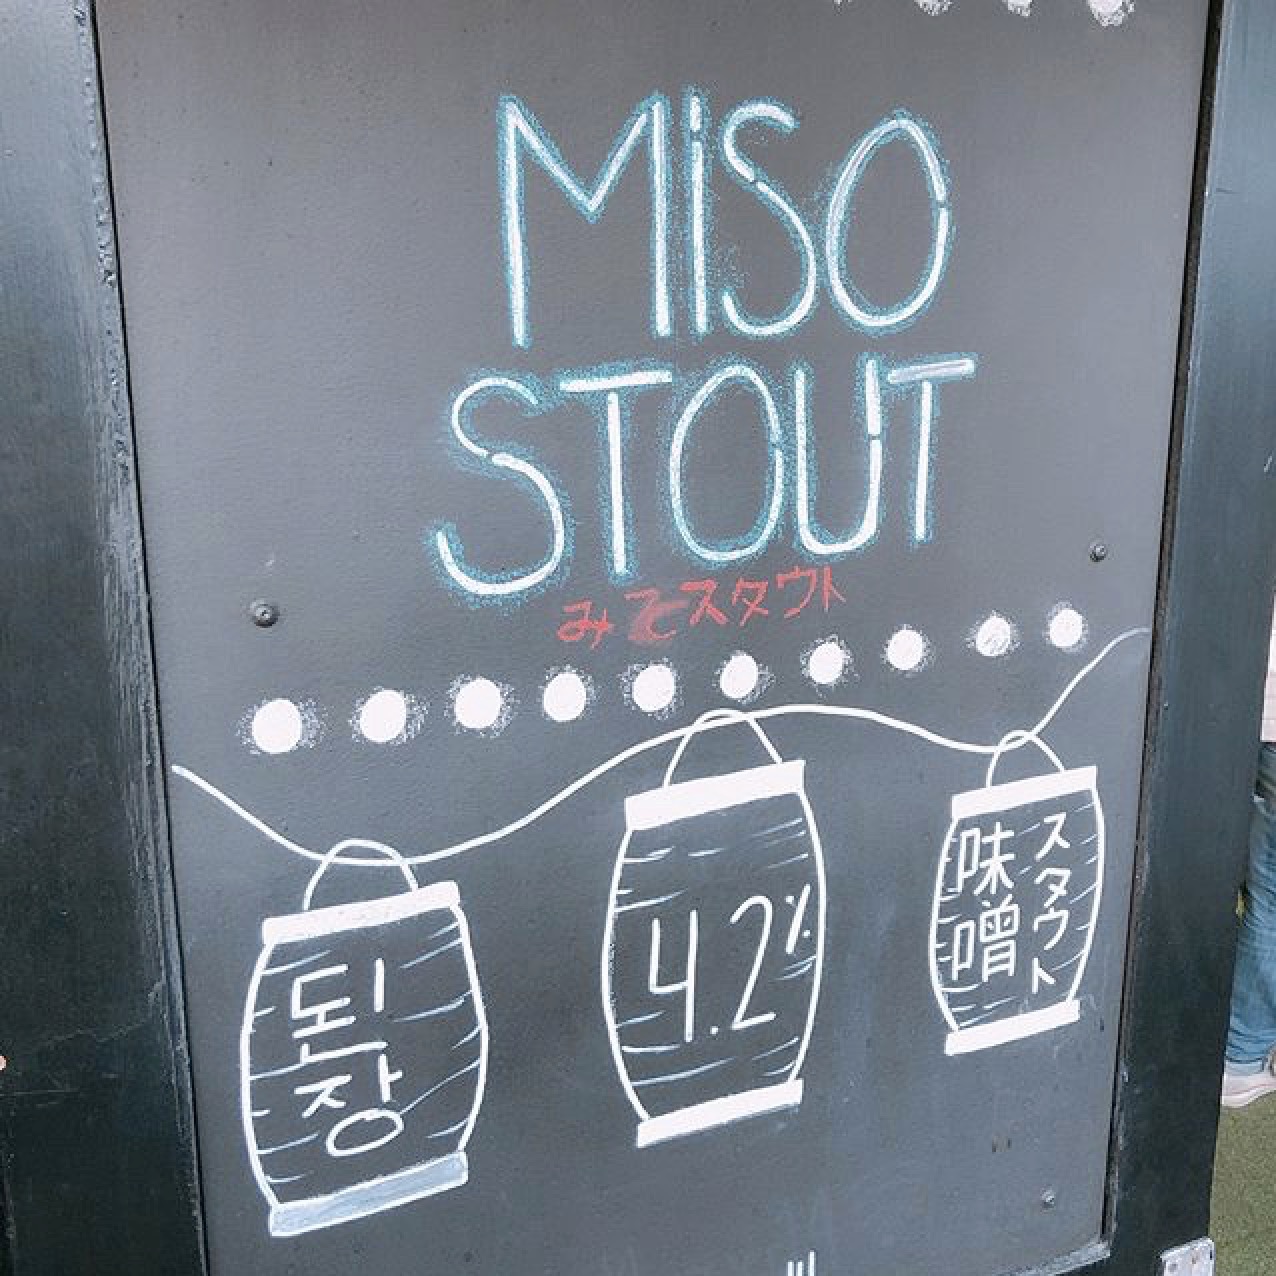 MiSO
STOUT
みそスタウト
된장
4.2%
味噌
スタウト